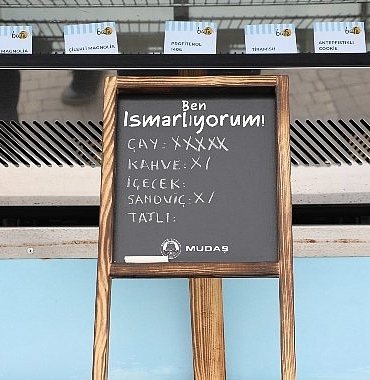 MAGNOLİA
ÇİLEKLİ MAGNOLİA
PROFİTEROL
TİRAMİSU
ANTEPFISTIKLI
COOKIE
Ben
Ismarlıyorum!
ÇAY: XXXXX
KAHVE: X/
İÇECEK:
SANDVİÇ: X/
TATLI:
MUDAŞ